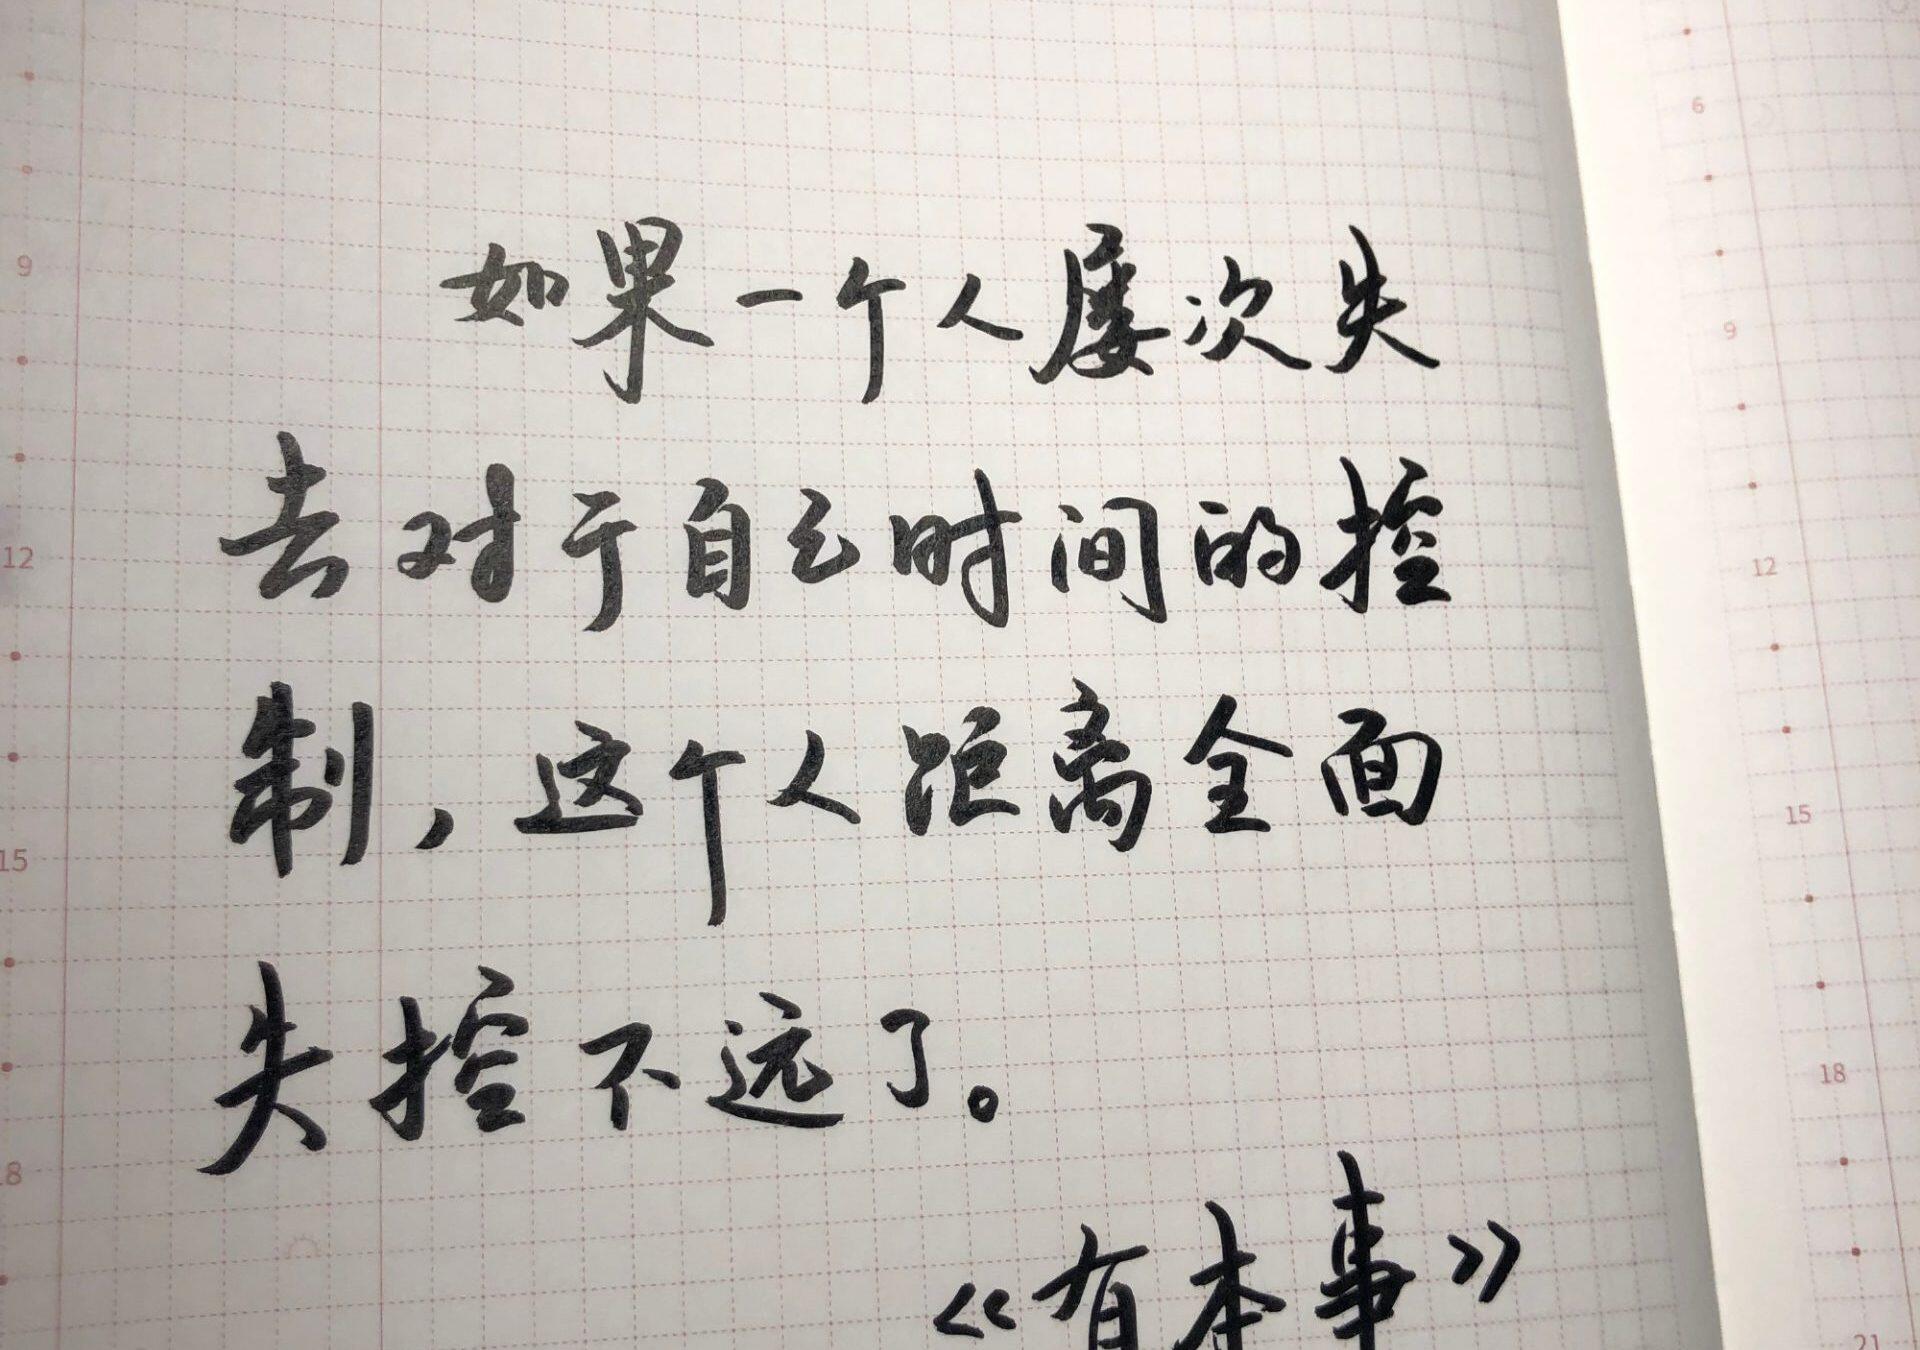 如果一个人屡次失
去对于自己时间的控
制，这个人距离全面
失控不远了。
《有本事》
9
12
15
18
6
9
12
15
18
21